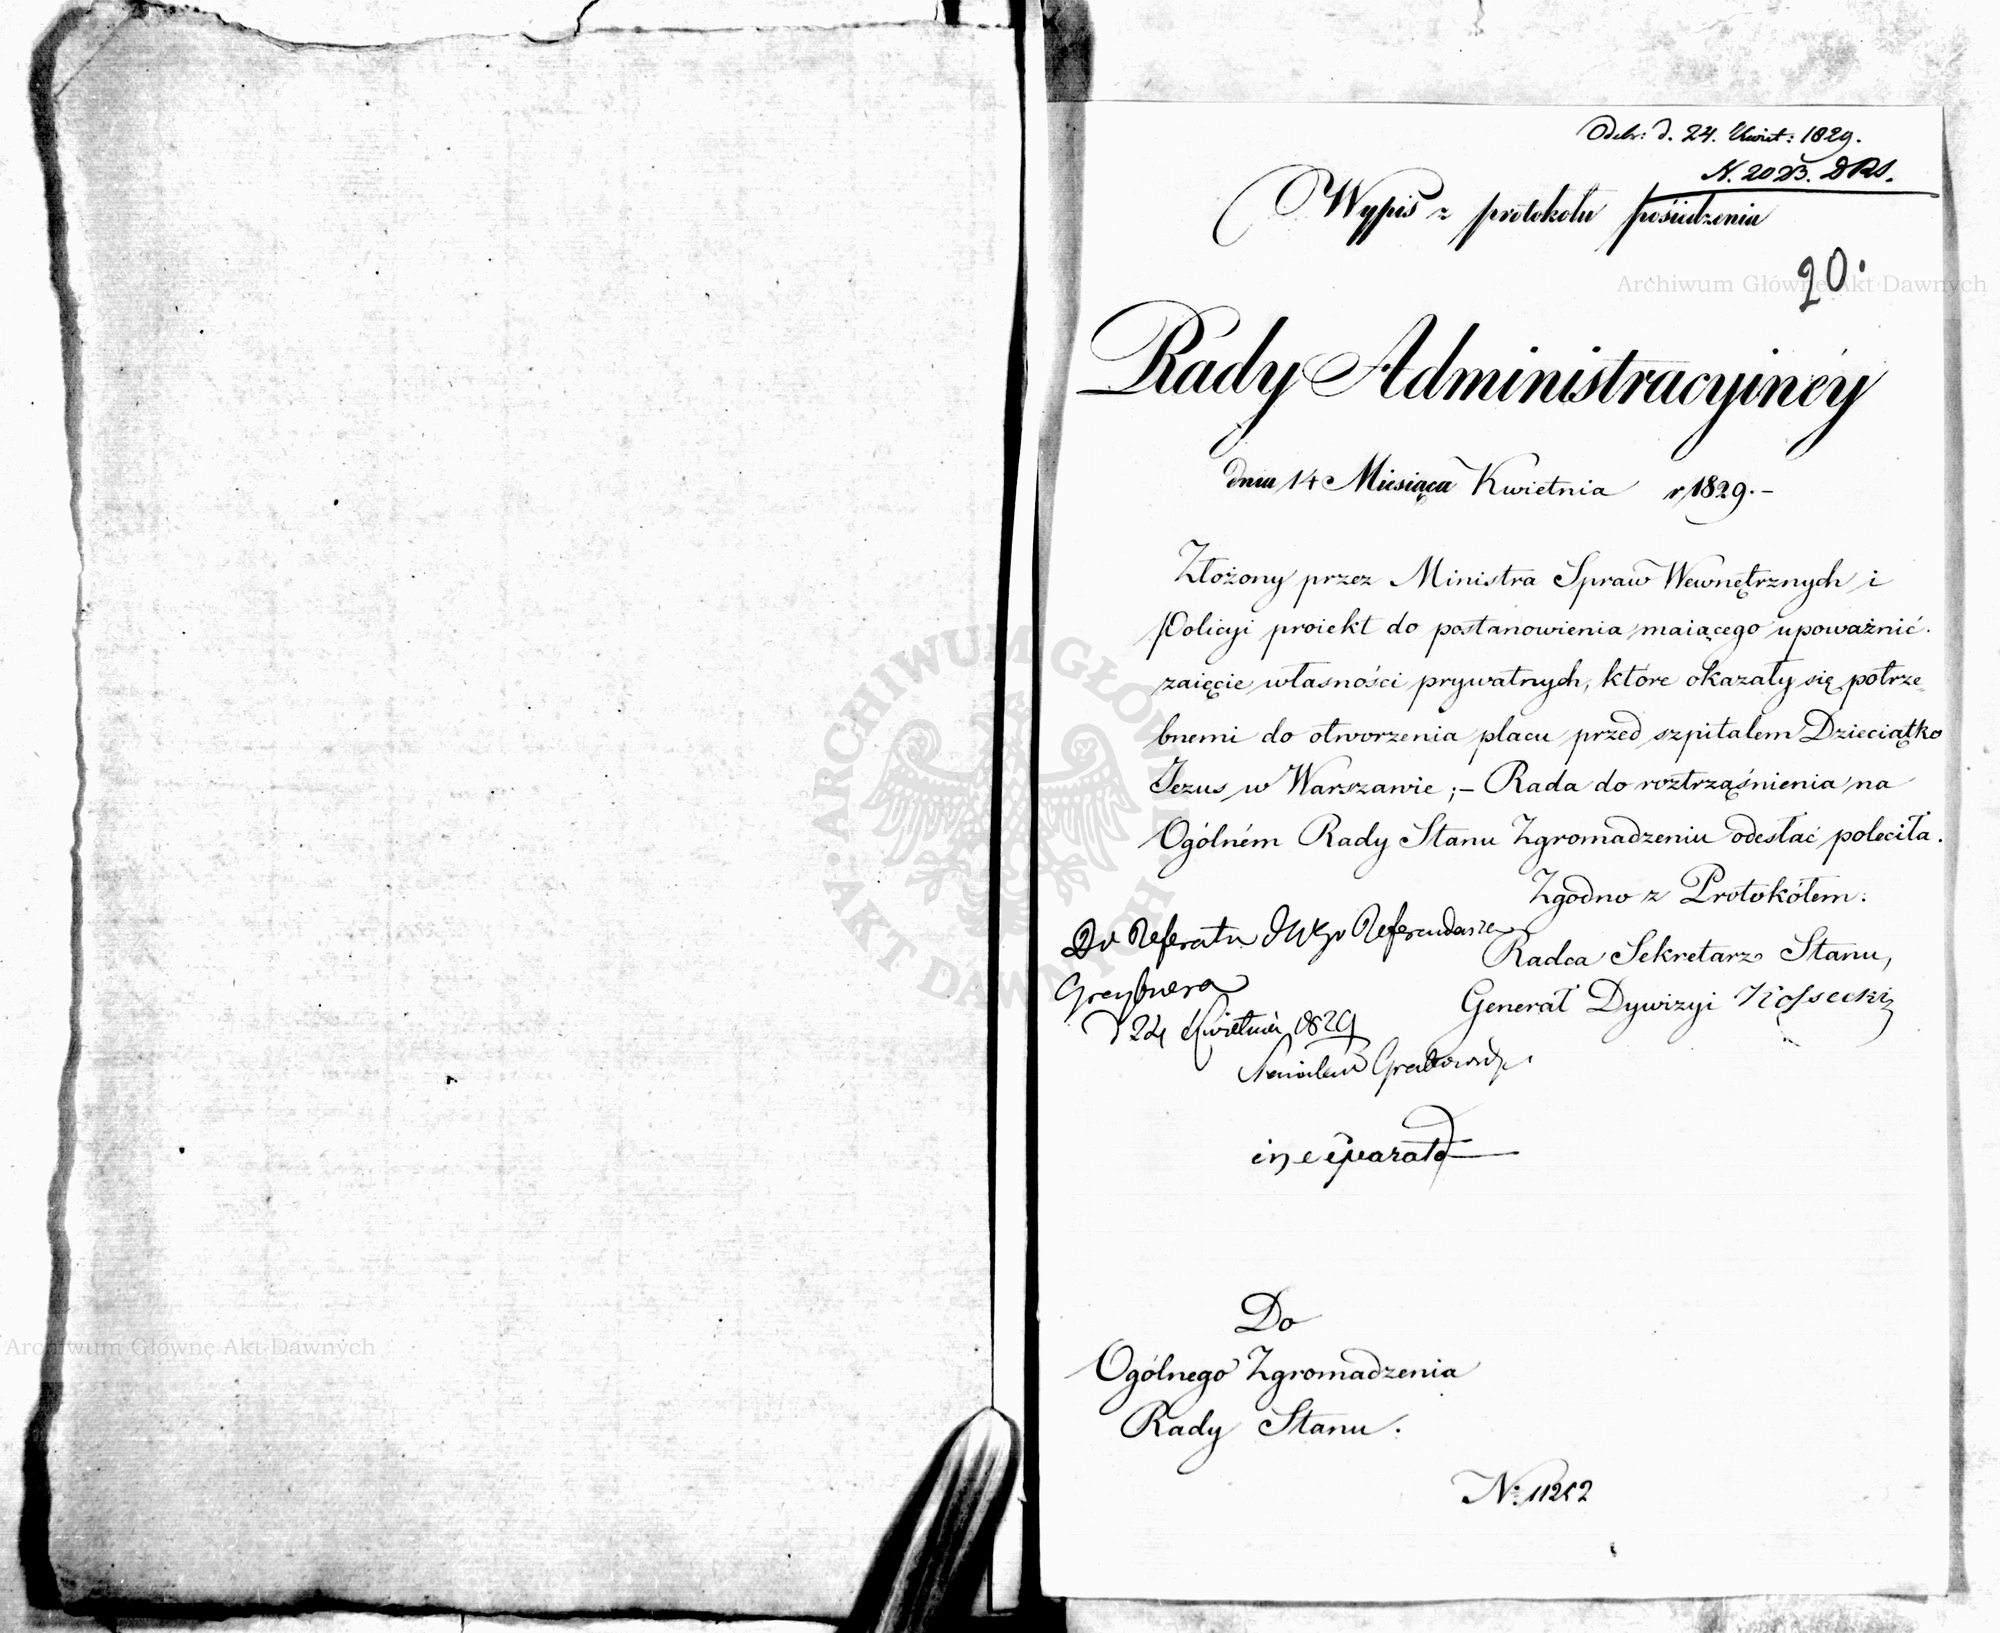 Odebr: d. 24. Kwiet: 1829.
N. 2023. DRS.
Wypis z protokołu posiedzenia
20.
Rady Administracyinéy
dnia 14 Miesiąca Kwietnia r 1829.-
Złożony przez Ministra Spraw Wewnętrznych i
Policyi proiekt do postanowienia maiącego upoważnić
zaięcie własności prywatnych, które okazały się potrze-
bnemi do otworzenia placu przed szpitalem Dzieciątko
Jezus w Warszawie ;- Rada do roztrząśnienia na
Ogólném Rady Stanu Zgromadzeniu odesłać poleciła.
Zgodno z Protokółem:
Radca Sekretarz Stanu,
Generał Dywizyi Kossecki
Do Referatu JWgo Referendarza
Greybnera
d 24 Kwietnia 1829
Stanisław Grabowski
in separato
Do
Ogólnego Zgromadzenia
Rady Stanu.
No: 11252
Archiwum Główne Akt Dawnych
Archiwum Główne Akt Dawnych
ARCHIWUM GŁÓWNE AKT DAWNYCH